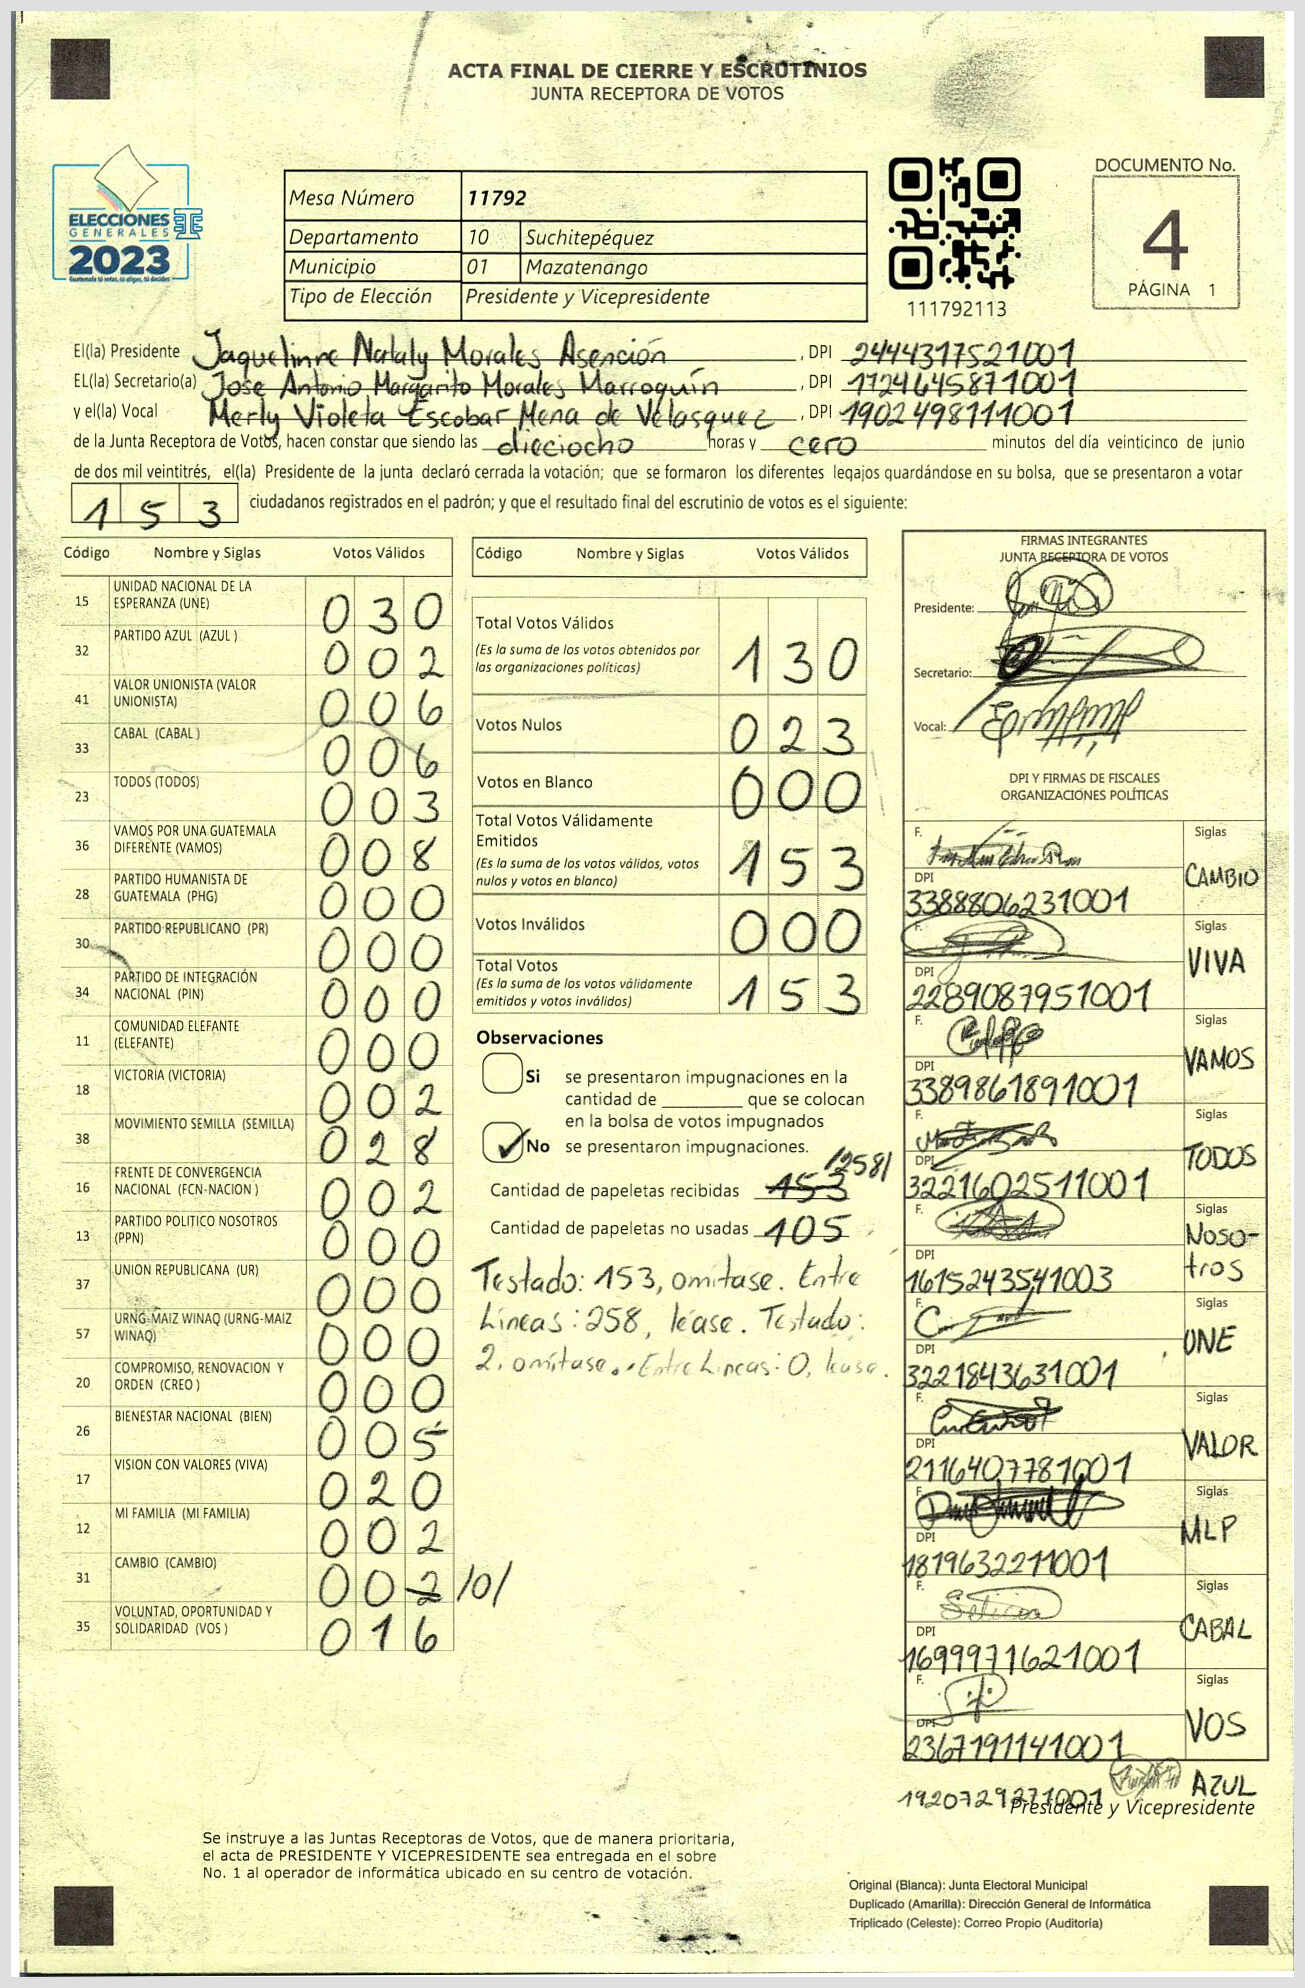 ACTA FINAL DE CIERRE Y ESCRUTINIOS
JUNTA RECEPTORA DE VOTOS
ELECCIONES
GENERALES
2023
Guatemala tú votas, tú eliges, tú decides
Mesa Número 11792
Departamento 10 Suchitepéquez
Municipio 01 Mazatenango
Tipo de Elección Presidente y Vicepresidente
111792113
DOCUMENTO No.
4
PÁGINA 1
El(la) Presidente Jaquelinne Nataly Morales Asención, DPI 2444317521001
EL(la) Secretario(a) Jose Antonio Margarito Morales Marroquín, DPI 1724645871001
y el(la) Vocal Merly Violeta Escobar Mena de Velasquez, DPI 1902498111001
de la Junta Receptora de Votos, hacen constar que siendo las dieciocho horas y cero minutos del día veinticinco de junio
de dos mil veintitrés, el(la) Presidente de la junta declaró cerrada la votación; que se formaron los diferentes legajos guardándose en su bolsa, que se presentaron a votar
153 ciudadanos registrados en el padrón; y que el resultado final del escrutinio de votos es el siguiente:
Código Nombre y Siglas Votos Válidos
15 UNIDAD NACIONAL DE LA ESPERANZA (UNE) 030
32 PARTIDO AZUL (AZUL ) 002
41 VALOR UNIONISTA (VALOR UNIONISTA) 006
33 CABAL (CABAL ) 006
23 TODOS (TODOS) 003
36 VAMOS POR UNA GUATEMALA DIFERENTE (VAMOS) 008
28 PARTIDO HUMANISTA DE GUATEMALA (PHG) 000
30 PARTIDO REPUBLICANO (PR) 000
34 PARTIDO DE INTEGRACIÓN NACIONAL (PIN) 000
11 COMUNIDAD ELEFANTE (ELEFANTE) 000
18 VICTORIA (VICTORIA) 002
38 MOVIMIENTO SEMILLA (SEMILLA) 028
16 FRENTE DE CONVERGENCIA NACIONAL (FCN-NACION ) 002
13 PARTIDO POLITICO NOSOTROS (PPN) 000
37 UNION REPUBLICANA (UR) 000
57 URNG-MAIZ WINAQ (URNG-MAIZ WINAQ) 000
20 COMPROMISO, RENOVACION Y ORDEN (CREO ) 000
26 BIENESTAR NACIONAL (BIEN) 005
17 VISION CON VALORES (VIVA) 020
12 MI FAMILIA (MI FAMILIA) 002
31 CAMBIO (CAMBIO) 002 /0/
35 VOLUNTAD, OPORTUNIDAD Y SOLIDARIDAD (VOS ) 016
Código Nombre y Siglas Votos Válidos
Total Votos Válidos
(Es la suma de los votos obtenidos por
las organizaciones políticas) 130
Votos Nulos 023
Votos en Blanco 000
Total Votos Válidamente
Emitidos
(Es la suma de los votos válidos, votos
nulos y votos en blanco) 153
Votos Inválidos 000
Total Votos
(Es la suma de los votos válidamente
emitidos y votos inválidos) 153
Observaciones
Si se presentaron impugnaciones en la
cantidad de ________ que se colocan
en la bolsa de votos impugnados
No se presentaron impugnaciones.
Cantidad de papeletas recibidas 153 /258/
Cantidad de papeletas no usadas 105
Testado: 153, omítase. Entre
Líneas: 258, léase. Testado:
2, omítase. Entre Lineas: 0, lease.
FIRMAS INTEGRANTES
JUNTA RECEPTORA DE VOTOS
Presidente:
Secretario:
Vocal:
DPI Y FIRMAS DE FISCALES
ORGANIZACIONES POLÍTICAS
F. Siglas
DPI CAMBIO
3388806231001
F. Siglas
DPI VIVA
2289087951001
F. Siglas
DPI VAMOS
3389861891001
F. Siglas
DPI TODOS
3221602511001
F. Siglas
DPI Noso-
tros
1615243541003
F. Siglas
DPI UNE
3221843631001
F. Siglas
DPI VALOR
2116407781001
F. Siglas
DPI MLP
1819632211001
F. Siglas
DPI CABAL
1699971621001
F. Siglas
DPI VOS
2367191141001
1920729271001 AZUL
Presidente y Vicepresidente
Se instruye a las Juntas Receptoras de Votos, que de manera prioritaria,
el acta de PRESIDENTE Y VICEPRESIDENTE sea entregada en el sobre
No. 1 al operador de informática ubicado en su centro de votación.
Original (Blanca): Junta Electoral Municipal
Duplicado (Amarilla): Dirección General de Informática
Triplicado (Celeste): Correo Propio (Auditoría)